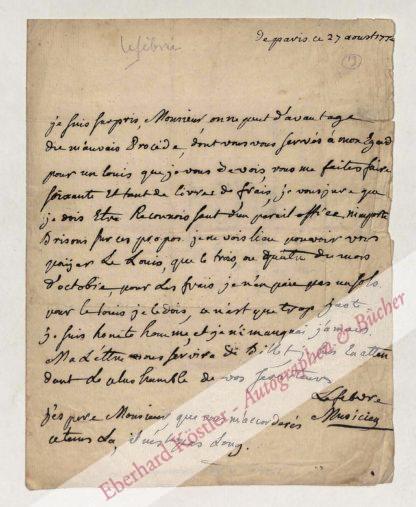 Lefebvre
de paris ce 27 aoust 177
(12)
je suis surpris, Monsieur on ne peut d'avantage
du mauvais Procédé, dont vous vous servés à mon Egard
pour un louis que je vous devois vous me faites faire
soixante Et tant de livres de frais, je vous jure que
je dois Etre Reconnoissant d'un pareil office, n'importe
Brisons sur ces propos. je ne vois lieu pouvoir vous
païer Le Louis, que le trois, ou quatre du mois
d'octobre, pour Les frais je n'en paie pas un sols.
pour le louis je le dois, ce n'est que trop juste.
je suis honete homme, et je n'ai manqué jamais.
Ma Lettre vous servira de Billet, je suis En atten
dant Le plus humble de vos serviteurs
Lefebvre
Musicien
j'espere Monsieur que vous m'accorderés
ce tems La, il n'est pas Long.
Eberhard Köstler - Autographen & Bücher